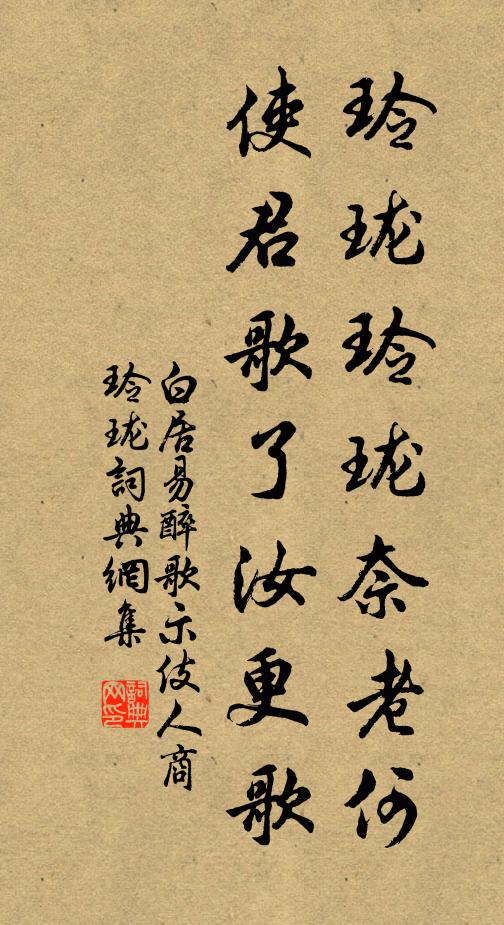 玲珑玲珑奈老何
使君歌了汝更歌
白居易醉歌示伎人商
玲珑詞典網集
詞典网印